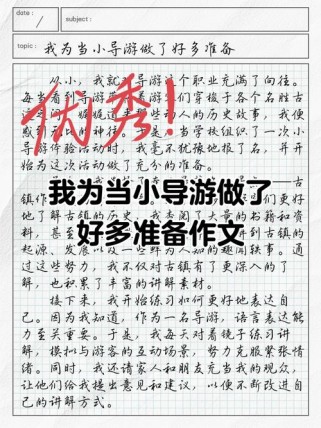 date:
subject:
topic: 我为当小导游做了好多准备
从小，我就 导游这个职业充满了向往。
每当看到导游 们穿梭于各个名胜古
人的历史故事，我便
感到无比的神往。 当学校组织了一次小
导游体验活动时，我毫不犹豫地报了名，并开
始为这次活动做了充分的准备。
优秀！
我为当小导游做了
好多准备作文
起源、发展以及一些鲜为人知的趣闻轶事。通
过这些努力，我不仅对古镇有了更深入的了
解，也积累了丰富的讲解素材。
接下来，我开始练习如何更好地表达自
己。因为我知道，作为一名导游，语言表达能
力至关重要。于是，我每天对着镜子练习讲
解，模拟与游客的互动场景，努力克服紧张情
绪。同时，我还请家人和朋友充当我的观众，
让他们给我提出意见和建议，以便不断改进自
己的讲解方式。